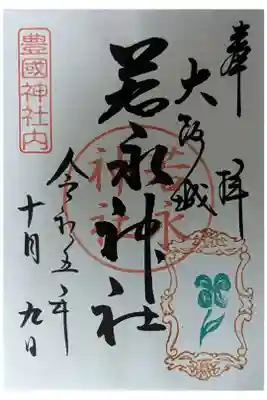 奉拝
大阪城
若永神社
若永神社
豊國神社内
令和五年
十月九日